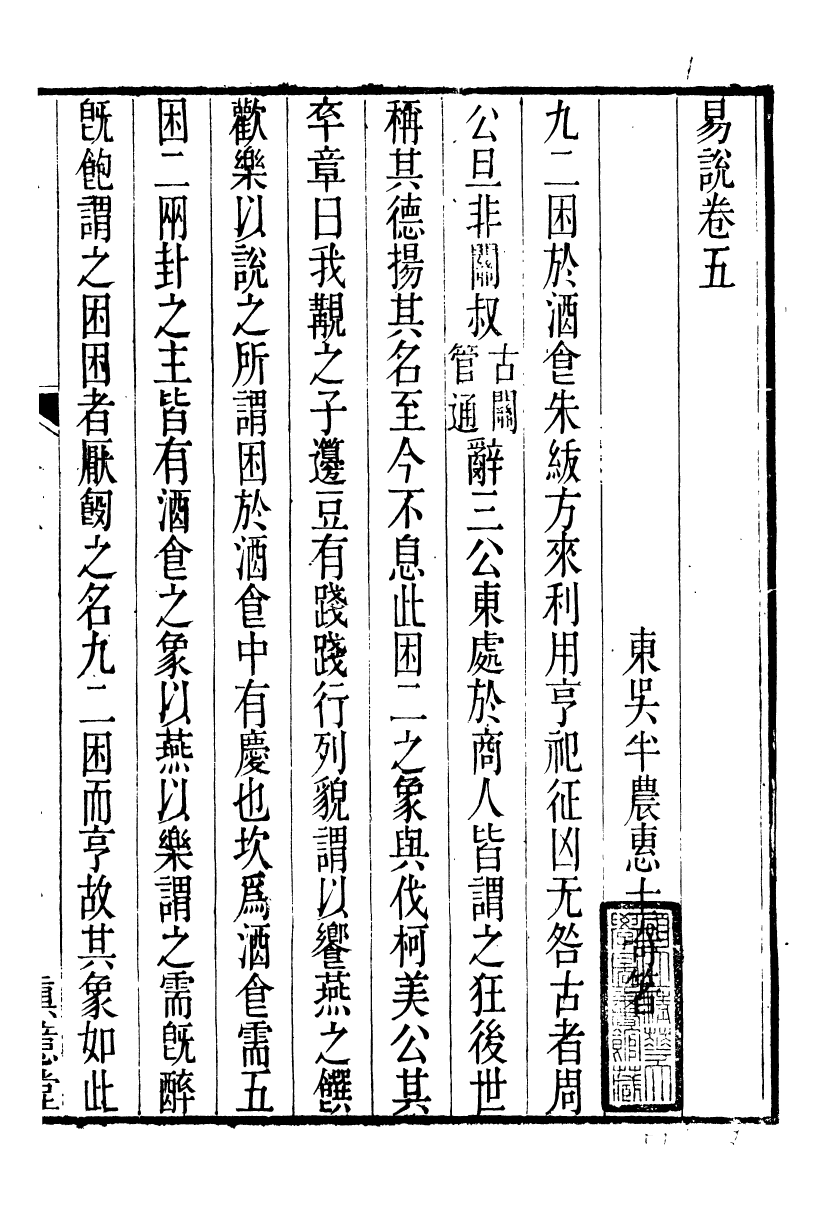 易說卷五
東吳半農惠士奇著
九二困於酒食朱紱方來利用亨祀征凶无咎古者周
公旦非關叔古關管通辭三公東處於商人皆謂之狂後世
稱其德揚其名至今不息此困二之象與伐柯美公其
卒章曰我覯之子籩豆有踐踐行列貌謂以饗燕之饌
歡樂以說之所謂困於酒食中有慶也坎爲酒食需五
困二兩卦之主皆有酒食之象以燕以樂謂之需旣醉
旣飽謂之困困者厭飫之名九二困而亨故其象如此
眞意堂